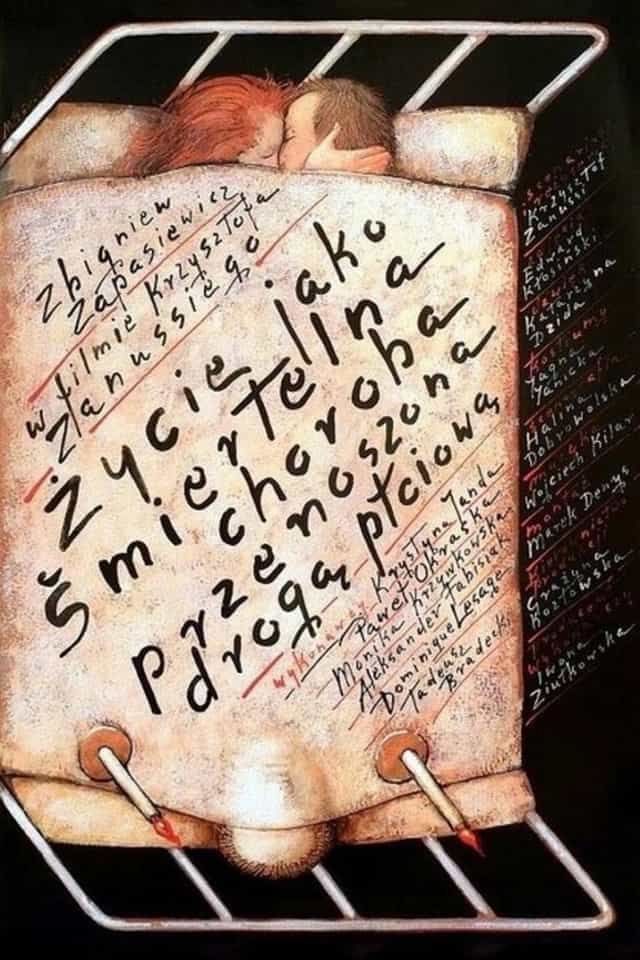 Zbigniew
Zapasiewicz
w filmie Krzysztofa
Zanussiego
Życie jako
śmiertelna
choroba
przenoszona
drogą płciową
wykonawcy Krystyna Janda
Paweł Okraska
Monika Krzywkowska
Aleksander Fabisiak
Dominique Lesage
Tadeusz
Bradecki
scenariusz
Krzysztof
Zanussi
Edward
Kłosiński
Katarzyna
Dzida
kostiumy
Jagna
Janicka
Halina
Dobrowolska
muzyka
Wojciech Kilar
montaż
Marek Denys
Grażyna
Kozłowska
Iwona
Ziułkowska